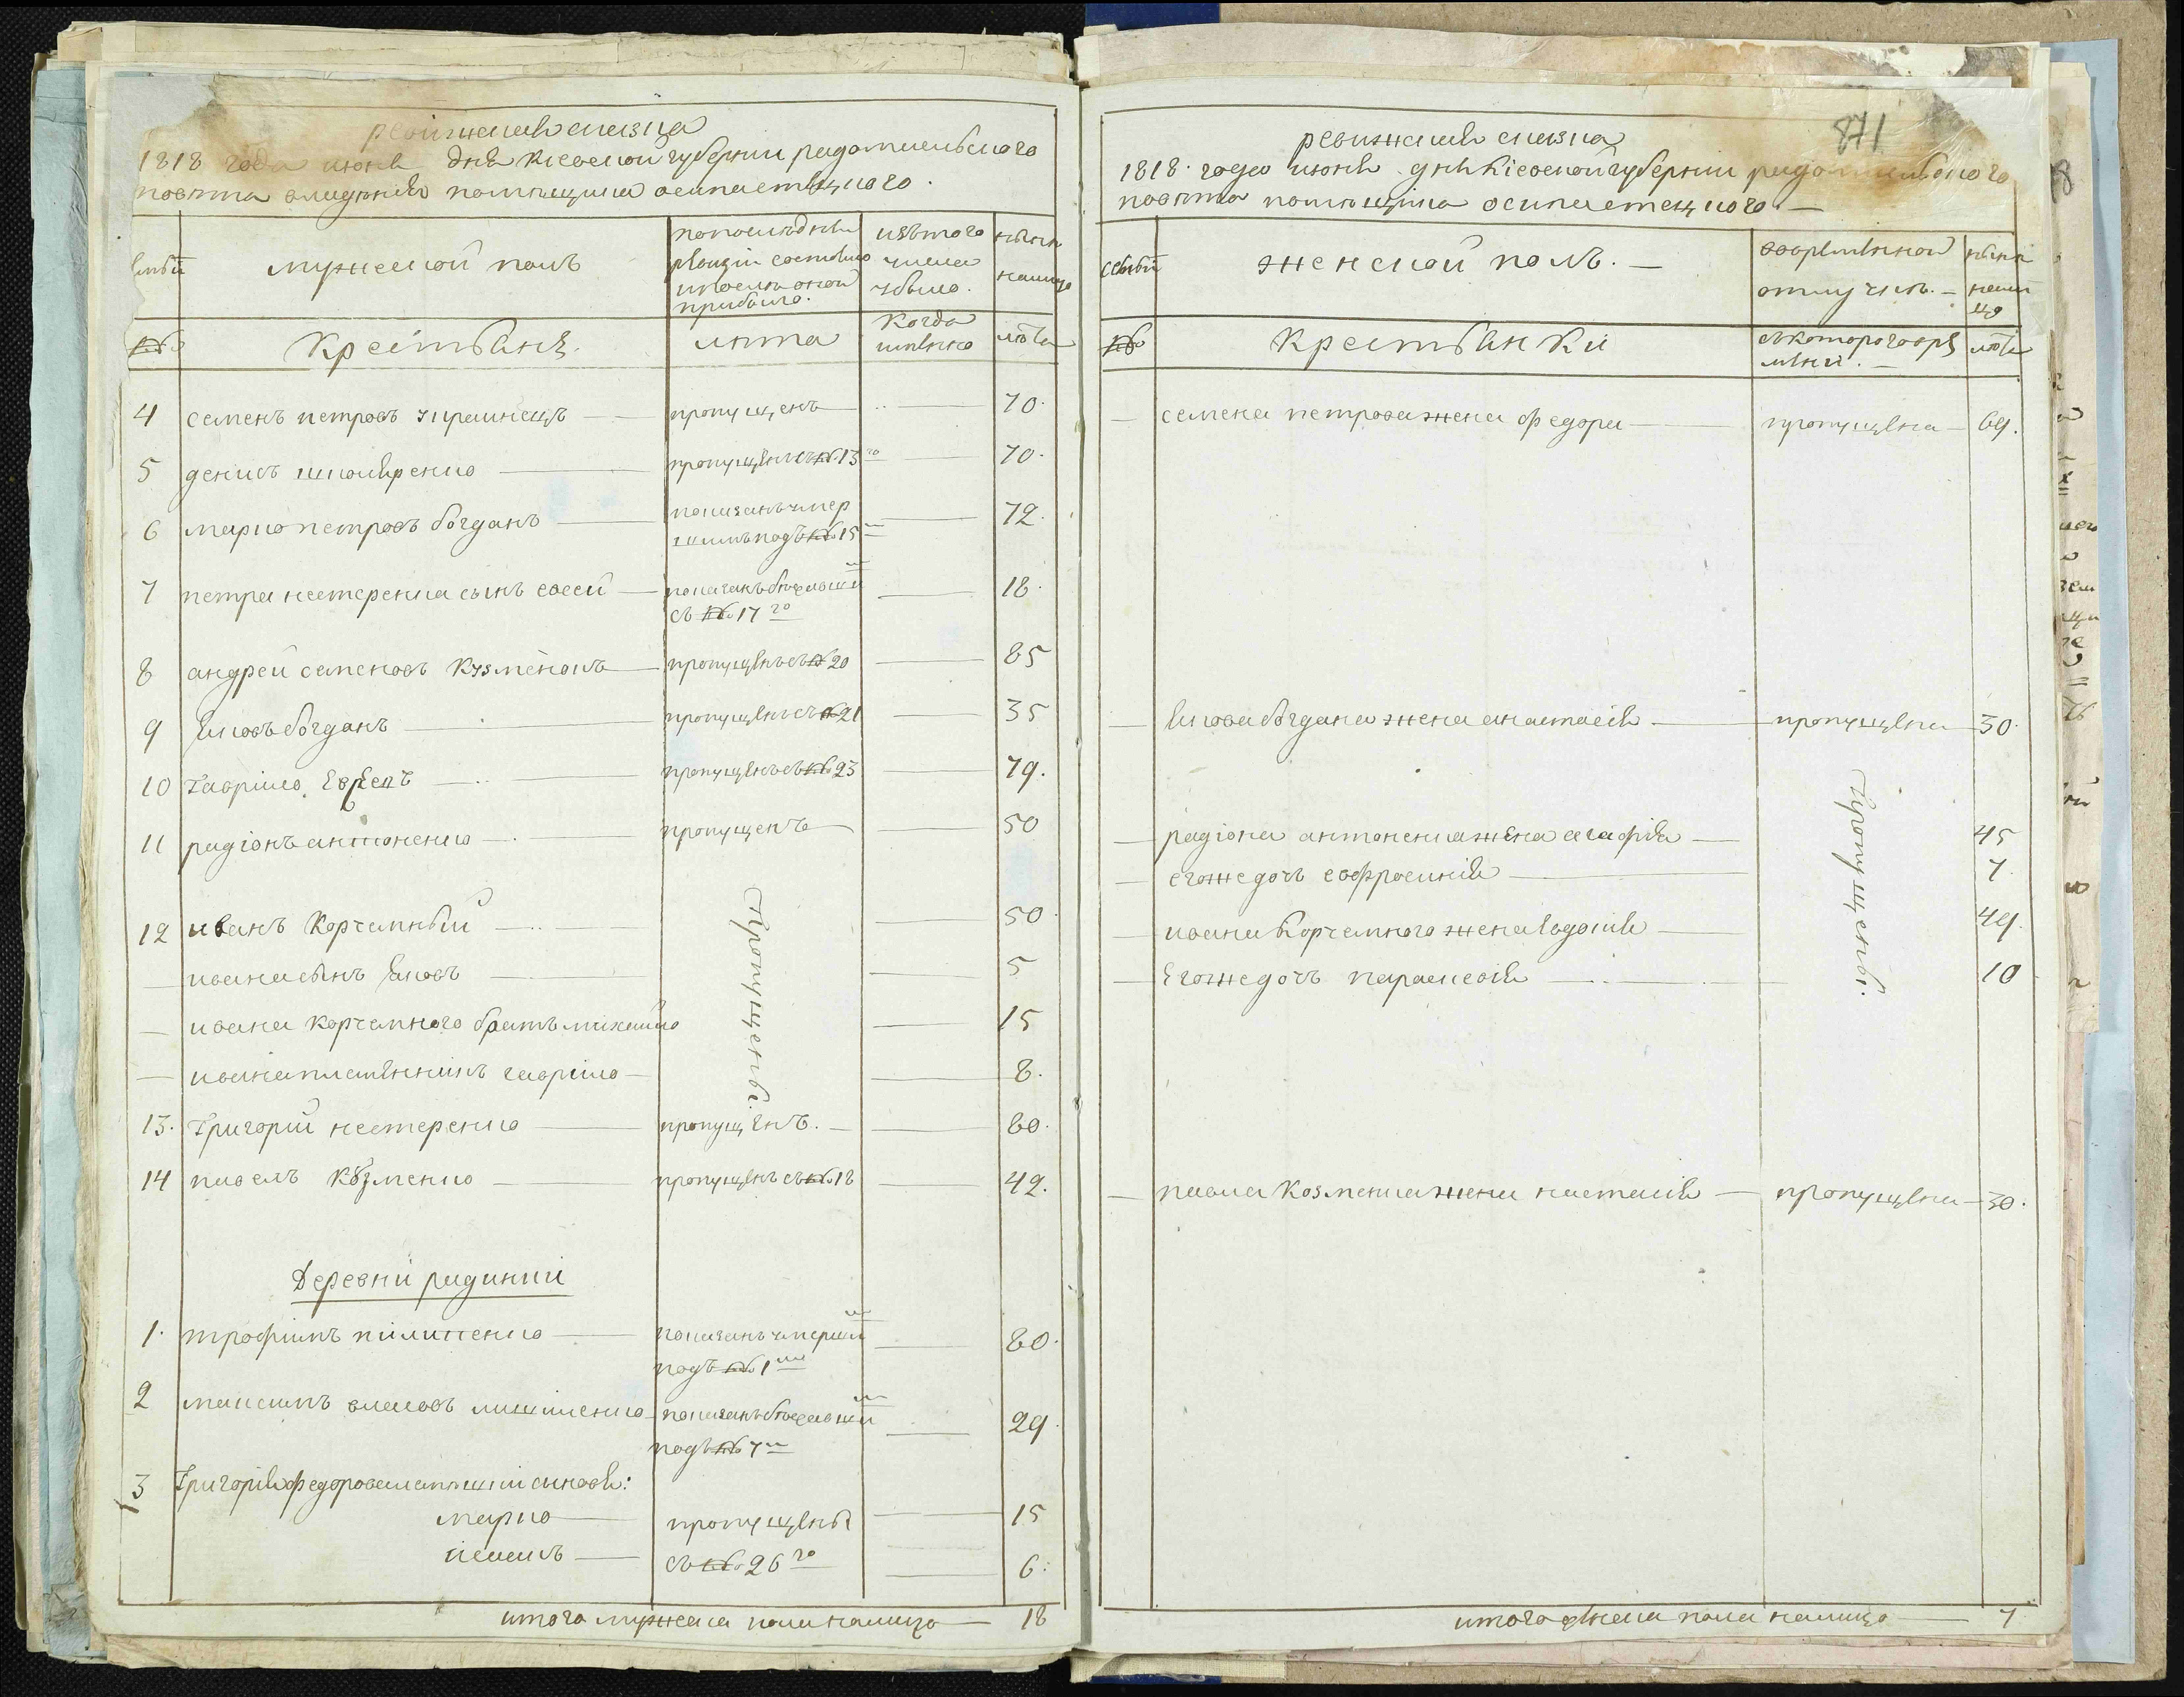 ревижская сказка
1818 года июня дня киевской губерніи радомысльскаго
повѣта владѣнія помѣщика осипа стецкого.
мужеской полъ
попослѣдней ревизіи состояло и послѣ оной прибыло.
изътого числа убыло.
нынѣ налицо
№
крестьянѣ.
лѣта
когда имянно
лѣта
4 семенъ петровъ украинецъ пропущенъ 70.
5 денисъ шкляренко пропущенъ съ№ 13го 70.
6 марко петровъ богданъ показанъ умер
шимъ подъ № 15 72.
7 петра нестеренка сынъ евсей показанъ бѣжавши
съ № 17го 18.
8 андрей семеновъ кузменокъ пропущенъ съ № 20 85
9 яковъ богданъ пропущенъ съ № 21 35
10 гаврило пропущенъ съ № 23 79.
11 радіонъ антоненко пропущенъ 50
12 иванъ корчемный 50.
ивана сынъ яковъ 5
ивана корчемного братъ михайло 15
ивана племянникъ гаврило 8.
пропущены.
13. григорій нестеренко пропущенъ. 60.
14 павелъ кузменко пропущенъ съ № 18 42.
деревни рудинки
1. трофимъ пилипенко показанъ умерши
подъ № 1мъ 80.
2 максимъ власовъ показанъ бѣжавши
подъ № 7мъ 29.
3 григорія федорова сыновя:
марко пропущены 15
исакъ съ № 26го 6.
итого мужеска пола налицо 18
871
ревижская сказка
1818. года июня дня кіевской губерніи радомысльского
повѣта помѣщика осипа стецкого.
женской полъ.
вовремянной отлучкѣ.
нынѣ налицо
№
крестьянки
съкоторого времяни.
лѣта
семена петрова жена федора пропущена 69.
якова богдана жена анастасія пропущена 30.
радіона антоненка жена агафія 45
егожедочъ евфросинія 7.
ивана корчемного жена евдокия 49.
егожедочъ параскевія 10
пропущены.
павла козменка жена настасія пропущена 30.
итого женска пола налицо 7